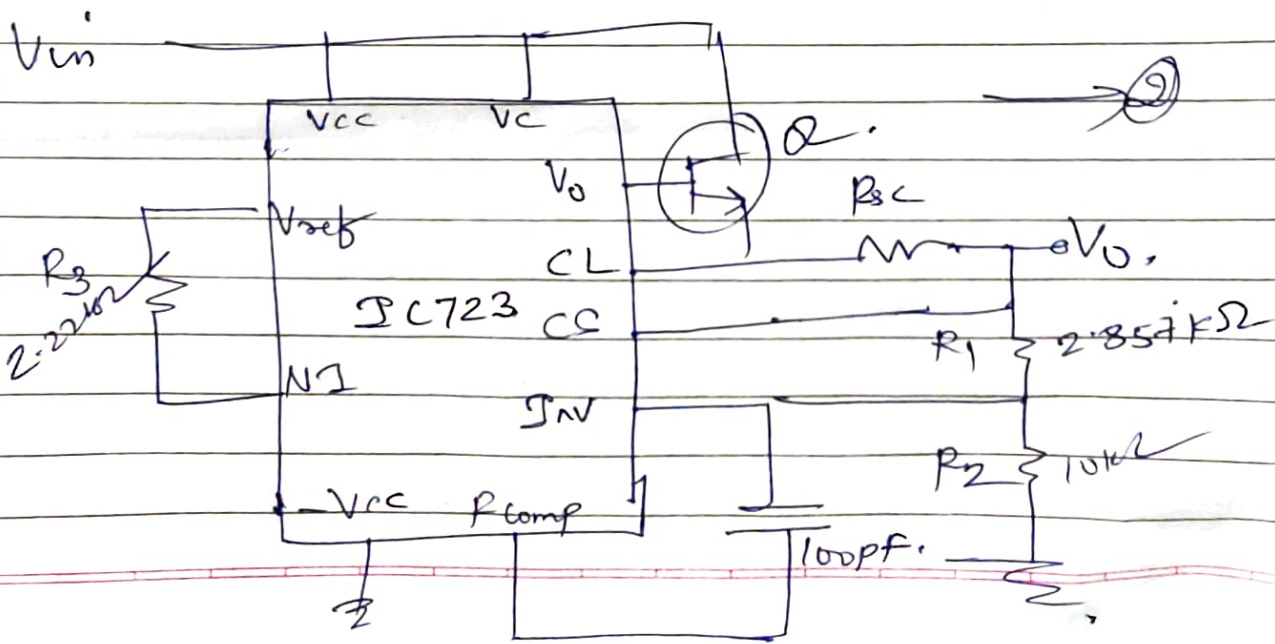 Vin
→ 2
VCC VC
Q.
V0
Rsc
Vref
CL
V0.
R3
2.22kΩ
IC723
CS
R1 2.857kΩ
NI
INV
R2 10kΩ
-VCC Fcomp
100pF.